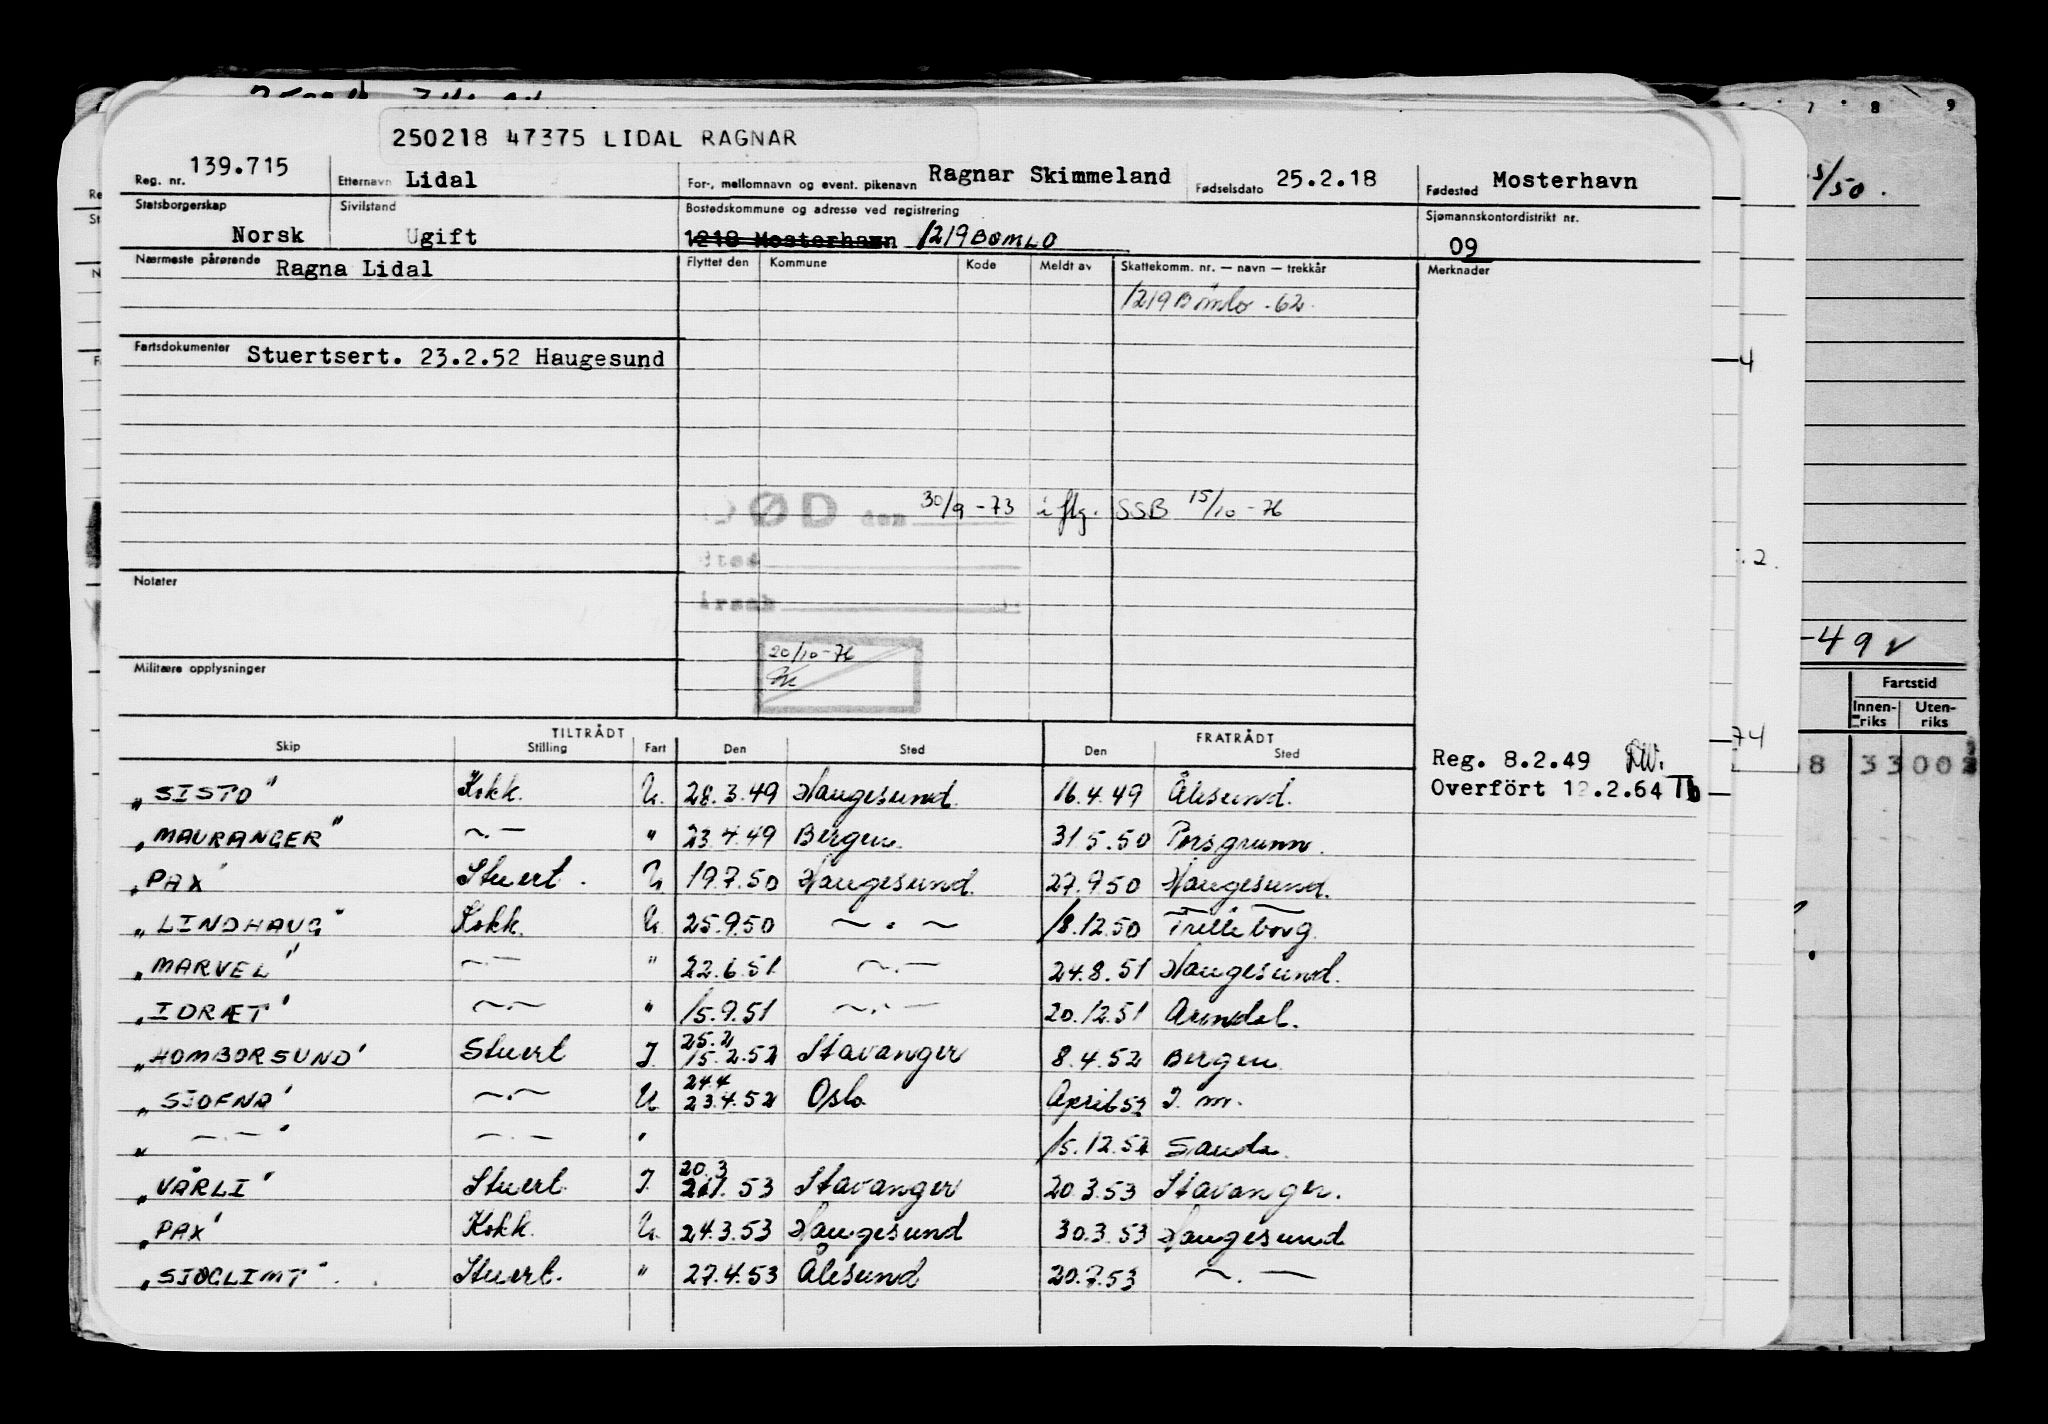 250218 47375 LIDAL RAGNAR
Reg. nr. 139.715 Etternavn Lidal For-, mellomnavn og event. pikenavn Ragnar Skimmeland Fødselsdato 25.2.18 Fødested Mosterhavn
Statsborgerskap Sivilstand Bostedskommune og adresse ved registrering Sjømannskontordistrikt nr.
Norsk Ugift 1218 Mosterhavn 1219 BØMLO 09
Nærmeste pårørende Ragna Lidal Flyttet den Kommune Kode Meldt av Skattekomm. nr. — navn — trekkår Merknader
1219 Bömlo -62
Fartsdokumenter Stuertsert. 23.2.52 Haugesund
DØD den 30/9 -73 i flg. SSB 15/10 -76
Notater
20/10 -76
Militære opplysninger
TILTRÅDT FRATRÅDT
Skip Stilling Fart Den Sted Den Sted
Reg. 8.2.49
Overfört 12.2.64
„SISTO" Kokk. U. 28.3.49 Haugesund. 16.4.49 Ålesund.
„MAURANGER" —.— " 23.4.49 Bergen. 31 5.50 Porsgrunn.
„PAX' Stuert. U 19.7.50 Haugesund. 27.9.50 Haugesund.
„LINDHAUG" Kokk. U. 25.9.50 —.— 18.12.50 Trelleborg.
„MARVEL' —.— " 22.6.51 —.— 24.8.51 Haugesund.
„IDRÆT' —.— " 15.9.51 —.— 20.12.51 Arendal.
„HOMBORSUND' Stuert I. 25.2 15.2.52 Stavanger 8.4.52 Bergen
„SJOFNA' —.— U 24.4 23.4.52 Oslo April 52 I. m.
„ —.— ' —.— " 15.12.52 Sauda.
„VÅRLI' Stuert I. 20.3 53 Stavanger 20.3.53 Stavanger.
„PAX' Kokk. U. 24.3.53 Haugesund 30.3.53 Haugesund
„SJOGLIMT". Stuert. " 27.4.53 Ålesund 20.7.53 —.—
7 8 9
5/50.
4
.2.
-49
Fartstid
Innen-riks Uten-riks
74
8 33 00